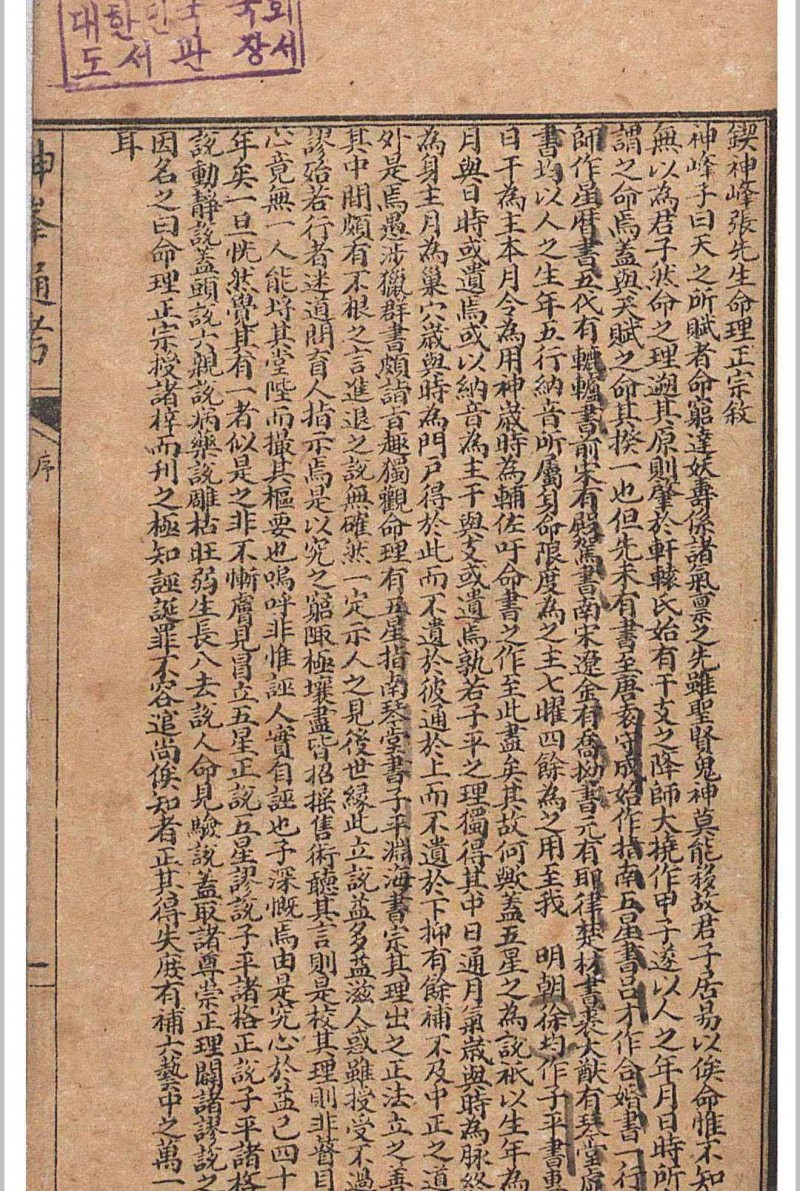 대한민국 국회
도서관 장서
鍥神峰張先生命理正宗敘
神峰子曰天之所賦者命窮達妖壽係諸氣禀之先雖聖賢鬼神莫能移故君子居易以俟命惟不知
無以為君子然命之理遡其原則肇於軒轅氏始有干支之降師大撓作甲子遂以人之年月日時所
謂之命焉蓋與天賦之命其揆一也但先未有書至唐袁守成始作指南五星書呂才作合婚書一行
師作星曆書五代有轆轤書前宋有殿駕書南宋遼金有喬拗書元有耶律楚材書表大猷有琴堂虛
書均以人之生年五行納音所屬身命限度為之主七曜四餘為之用至我 明朝徐均作子平書專
日干為主本月令為用神歲時為輔佐吁命書之作至此盡矣其故何歟蓋五星之為說祇以生年為
月與日時或遺焉或以納音為主干與支或遺焉孰若子平之理獨得其中日通月氣歲與時為脉終
為身主月為巢穴歲與時為門戶得於此而不遺於彼通於上而不遺於下抑有餘補不及中正之道
外是焉愚涉獵群書頗詣旨趣獨觀命理有五星指南琴堂書子平淵海書宗其理出之正法立之善
其中間頗有不根之言進退之說無確然一定示人之見後世緣此立說益多益滋人惑雖授受不過
謬殆若行者迷道問盲人指示焉是以究之窮陬極壤盡皆招搖售術聽其言則是校其理則非瞽目
心竟無一人能埒其堂陛而撮其樞要也嗚呼非惟誣人實自誣也予深慨焉由是究心於益已四十
年矣一旦恍然覺其有一者似是之非不慚膚見冒立五星正說五星謬說子平諸格正說子平諸格
說動靜說蓋頭說六親說病藥說雕枯旺弱生長八去說人命見驗說蓋取諸尊崇正理闢諸謬說之
因名之曰命理正宗授諸梓而刊之極知誣誕罪不容逭尚俟知者正其得失庶有補六藝中之萬一
耳
神峯通考
序
一